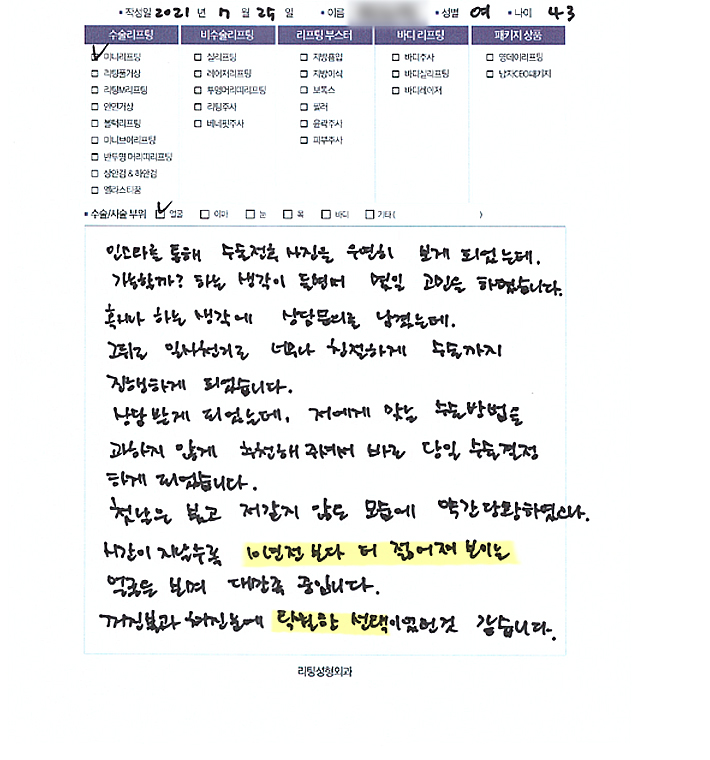 • 작성일 2021 년 7 월 25 일 • 이름 • 성별 여 • 나이 43
수술리프팅 비수술리프팅 리프팅 부스터 바디 리프팅 패키지 상품
미니리프팅 실리프팅 지방흡입 바디주사 명데이리프팅
리팅풀거상 레이저리프팅 지방이식 바디실리프팅 남자CEO패키지
리팅M리프팅 투명머리띠리프팅 보톡스 바디레이저
안면거상 리팅주사 필러
블럭리프팅 베네핏주사 윤곽주사
미니브이리프팅 피부주사
반투명 머리띠리프팅
상안검 & 하안검
엘라스티꿈
• 수술/시술 부위 얼굴 이마 눈 목 바디 기타 ( )
인스타를 통해 수술전후 사진을 우연히 보게 되었는데.
가능할까? 하는 생각이 들면서 몇일 고민을 하였습니다.
혹시나 하는 생각에 상담문의를 남겼는데.
그뒤로 일사천리로 너무나 친절하게 수술까지
진행하게 되었습니다.
상담 받게 되었는데. 저에게 맞는 수술방법을
과하지 않게 추천해 주셔서 바로 당일 수술결정
하게 되었습니다.
첫날은 붓고 저같지 않은 모습에 약간 당황하였으나.
시간이 지날수록 10년전 보다 더 젊어져 보이는
얼굴을 보며 대만족 중입니다.
꺼진볼과 처진눈에 탁월한 선택이였던것 같습니다.
리팅성형외과